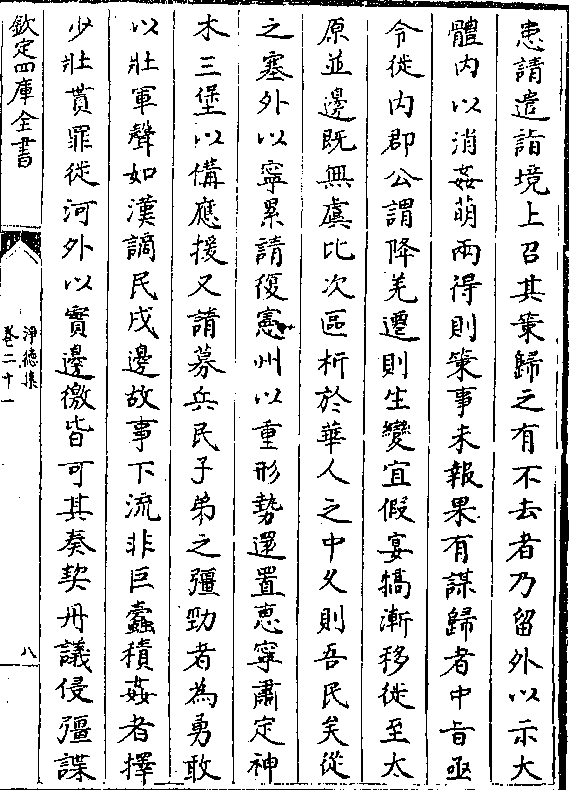 恚請遣詣境上召其䇿歸之有不去者乃留外以示大
體內以消姦萌兩得則䇿事未報果有謀歸者中旨亟
令徙內郡公謂降羌遷則生變宜假宴犒漸移徙至太
原並邊既無虞比次區析於華人之中久則吾民矣從
之塞外以寧累請復憲州以重形勢還置惠寧肅定神
木三堡以備應援又請募兵民子弟之彊勁者為勇敢
以壯軍聲如漢謫民戍邊故事下流非巨蠹積姦者擇
少壯貰罪徙河外以實邊徼皆可其奏契丹議侵疆諜
欽定四庫全書
淨德集
卷二十一
八